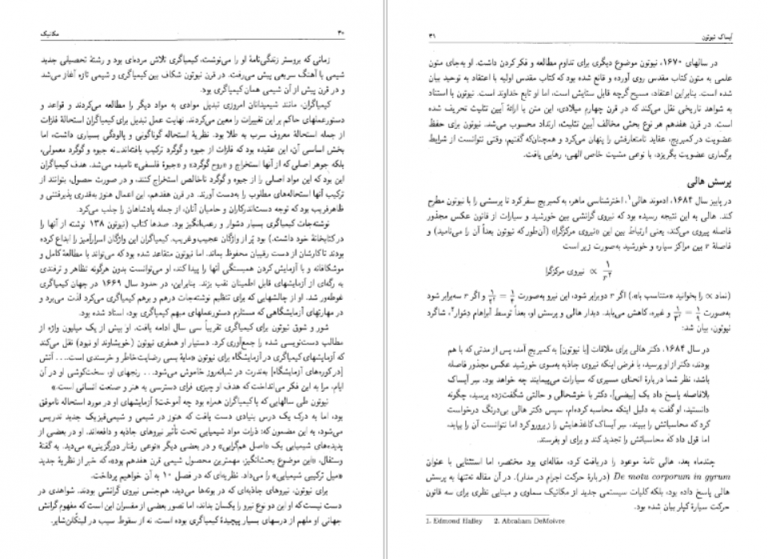 ۳۰ مکانیک
زمانی که بروستر زندگی‌نامهٔ او را می‌نوشت، کیمیاگری تلاش مرده‌ای بود و رشتهٔ تحصیلی جدید
شیمی با آهنگ سریعی پیش می‌رفت. در قرن نیوتون شکاف بین کیمیاگری و شیمی تازه آغاز می‌شد
و در قرن پیش از آن شیمی همان کیمیاگری بود.
کیمیاگران، مانند شیمیدانان امروزی تبدیل موادی به مواد دیگر را مطالعه می‌کردند و قواعد و
دستورعملهای حاکم بر این تغییرات را معین می‌کردند. نهایت عمل تبدیل برای کیمیاگران استحالهٔ فلزات
از جمله استحالهٔ معروف سرب به طلا بود. نظریهٔ استحاله گوناگونی و پالودگی بسیاری داشت، اما
بخش اساسی آن، این عقیده بود که فلزات از جیوه و گوگرد ترکیب یافته‌اند—نه جیوه و گوگرد معمولی،
بلکه جوهر اصلی که از آنها استخراج و «روح گوگرد» و «جیوهٔ فلسفی» نامیده می‌شد. هدف کیمیاگران
این بود که این مواد اصلی را از جیوه و گوگرد ناخالص استخراج کنند، و در صورت حصول، بتوانند از
ترکیب آنها استحاله‌های مطلوب را به‌دست آورند. در قرن هفدهم، این اعمال هنوز به‌قدری پذیرفتنی و
ظاهرفریب بود که توجه دست‌اندرکاران و حامیان آنان، از جمله پادشاهان را جلب می‌کرد.
نوشته‌جات کیمیاگری بسیار دشوار و رعب‌انگیز بود. صدها کتاب (نیوتون ۱۳۸ نوشته از آنها را
در کتابخانهٔ خود داشت.) بود پُر از واژگان عجیب‌وغریب. کیمیاگران این واژگان اسرارآمیز را ابداع کرده
تا کارهایشان از دست رقیبان محفوظ بماند. اما نیوتون متقاعد شده بود که می‌تواند با مطالعهٔ کامل و
موشکافانه و با آزمایش کردن همبستگی آنها را پیدا کند، او می‌توانست بدون هرگونه تظاهر و ترفندی
به رگه‌ای از آزمایشهای قابل اطمینان نقب بزند. بنابراین، در حدود سال ۱۶۶۹ در جهان کیمیاگری
غوطه‌ور شد. او از چالشهایی که برای تنظیم نوشته‌جات درهم و برهم کیمیاگری می‌کرد لذت می‌برد و
در مهارتهای آزمایشگاهی که مستلزم دستورعملهای مبهم کیمیاگری بود، استاد شده بود.
شور و شوق نیوتون برای کیمیاگری تقریباً سی سال ادامه یافت. او بیش از یک میلیون واژه از
مطالب دست‌نویسی شده را جمع‌آوری کرد. دستیار او همفری نیوتون (خویشاوند او نبود) نقل می‌کند
که آزمایشهای کیمیاگری در آزمایشگاه برای نیوتون «مایهٔ بسی رضایت‌خاطر و خرسندی است... آتش
[در کوره‌های آزمایشگاه] به‌ندرت در شبانه‌روز خاموش می‌شود... رنجهای او، سخت‌کوشی او در آن
ایام، مرا به این فکر می‌انداخت که هدف او چیزی فرای دسترسی به هنر و صنعت انسانی است.»
نیوتون طی سالهایی که با کیمیاگران همراه بود چه آموخت؟ آزمایشهای او در مورد استحاله ناموفق
بود، اما به درک یک درس بنیادی دست یافت که هنوز در شیمی و شیمی‌فیزیک جدید تدریس
می‌شود، به این مضمون که: ذرات مواد شیمیایی تحت تأثیر نیروهای جاذبه و دافعه‌اند. او در بعضی از
پدیده‌های شیمیایی یک «اصل هم‌گرایی» و در بعضی دیگر «نوعی رفتار دورگزینی» می‌دید. به گفتهٔ
وستفال، «این موضوع بحث‌انگیز، مهمترین محصول شیمی قرن هفدهم بود»، که خبر از نظریهٔ جدید
«میل ترکیبی شیمیایی» را می‌داد. نظریه‌ای که در فصل ۱۰ به آن خواهیم پرداخت.
برای نیوتون، نیروهای جاذبه‌ای که در بوته‌ها می‌دید، هم‌جنس نیروی گرانشی بودند. شواهدی در
دست نیست که او این دو نوع نیرو را یکسان بداند، اما تصور بعضی از مفسران این است که مفهوم گرانش
جهانی او ملهم از درسهای بسیار پیچیدهٔ کیمیاگری بوده است، نه از سقوط سیب در لینکُلن‌شایر.
آیساک نیوتون ۳۱
در سالهای ۱۶۷۰، نیوتون موضوع دیگری برای تداوم مطالعه و فکر کردن داشت. او به‌جای متون
علمی به متون کتاب مقدس روی آورده و قانع شده بود که کتاب مقدس اولیه با اعتقاد به توحید بیان
شده است. بنابراین اعتقاد، مسیح گرچه قابل ستایش است، اما او تابع خداوند است. نیوتون با استناد
به شواهد تاریخی نقل می‌کند که در قرن چهارم میلادی، این متن با ارائهٔ آیین تثلیث تحریف شده
است. در قرن هفدهم هر نوع بحثی مخالف آیین تثلیث، ارتداد محسوب می‌شد. نیوتون برای حفظ
عضویت در کمبریج، عقاید نامتعارفش را پنهان می‌کرد و همچنان‌که گفتیم، وقتی نتوانست از شرایط
برگماری عضویت بگریزد، با نوعی مشیت خاص الهی، رهایی یافت.
پرسش هالی
در پاییز سال ۱۶۸۴، ادموند هالی۱، اخترشناسی ماهر، به کمبریج سفر کرد تا پرسشی را با نیوتون مطرح
کند. هالی به این نتیجه رسیده بود که نیروی گرانشی بین خورشید و سیارات از قانون عکس مجذور
فاصله پیروی می‌کند، یعنی ارتباط بین این «نیروی مرکزگرا» (آن‌طور که نیوتون بعداً آن را می‌نامید) و
فاصلهٔ r بین مراکز سیاره و خورشید به‌صورت زیر است
۱/r۲ ∝ نیروی مرکزگرا
(نماد ∝ را بخوانید «متناسب با».) اگر r دوبرابر شود، این نیرو به‌صورت ۱/۲۲ = ۱/۴ و اگر r سه‌برابر شود
به‌صورت ۱/۳۲ = ۱/۹ و غیره، کاهش می‌یابد. دیدار هالی و پرسش او، بعداً توسط آبراهام دموآور۲، شاگرد
نیوتون، بیان شد:
در سال ۱۶۸۴، دکتر هالی برای ملاقات [با نیوتون] به کمبریج آمد، پس از مدتی که با هم
بودند، دکتر از او پرسید، با فرض اینکه نیروی جاذبه به‌سوی خورشید عکس مجذور فاصله
باشد، نظر شما دربارهٔ انحنای مسیری که سیارات می‌پیمایند چه خواهد بود. سِر آیساک
بلافاصله پاسخ داد یک [بیضی]، دکتر با خوشحالی و حالتی شگفت‌زده پرسید، چگونه
دانستید، او گفت به دلیل اینکه محاسبه کرده‌ام، سپس دکتر هالی بی‌درنگ درخواست
کرد که محاسباتش را ببیند، سِر آیساک کاغذهایش را زیرورو کرد اما نتوانست آن را بیابد،
اما قول داد که محاسباتش را تجدید کند و برای او بفرستد.
چندماه بعد، هالی نامهٔ موعود را دریافت کرد، مقاله‌ای بود مختصر، اما استثنایی با عنوان
De motu corporum in gyrum (دربارهٔ حرکت اجرام در مدار). در آن مقاله نه‌تنها به پرسش
هالی پاسخ داده بود، بلکه کلیات سیستمی جدید از مکانیک سماوی و مبنایی نظری برای سه قانون
حرکت سیارهٔ کپلر بیان شده بود.
1. Edmond Halley 2. Abraham DeMoivre